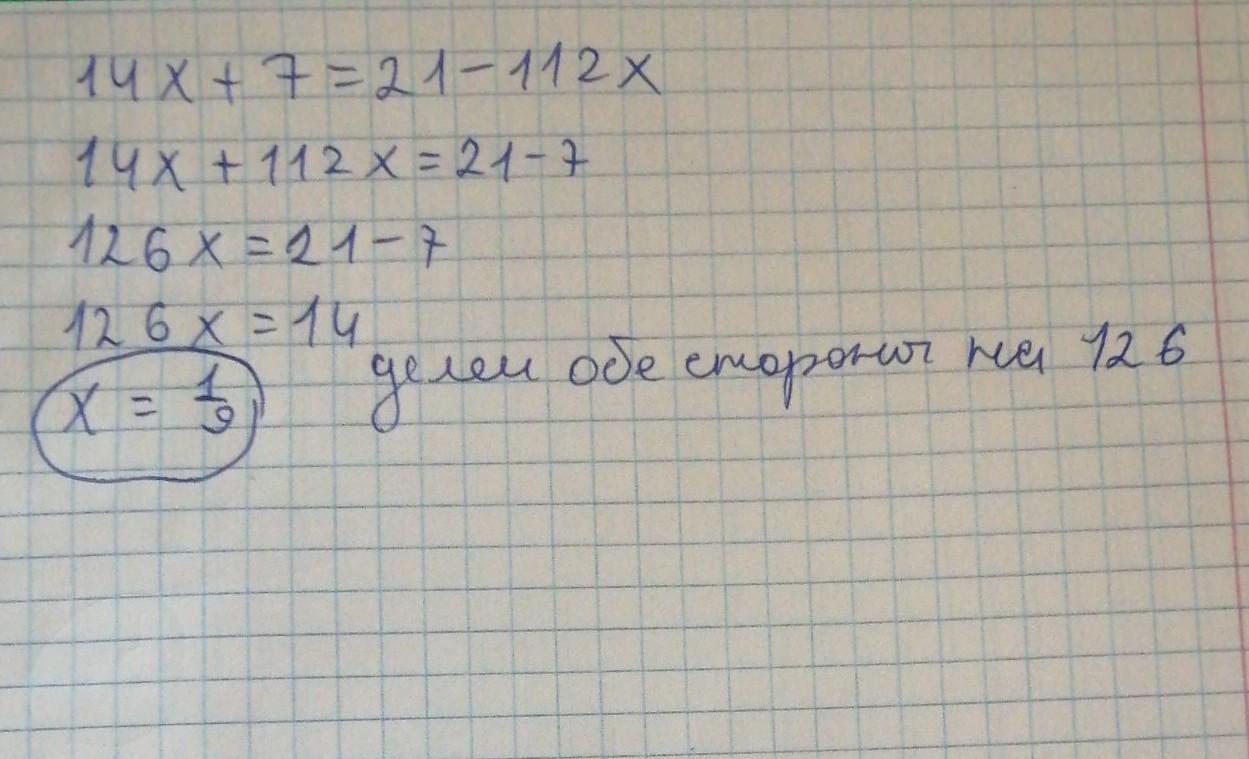 14x + 7 = 21 - 112x
14x + 112x = 21 - 7
126x = 21 - 7
126x = 14
делем обе стороны на 126
x = 1/9